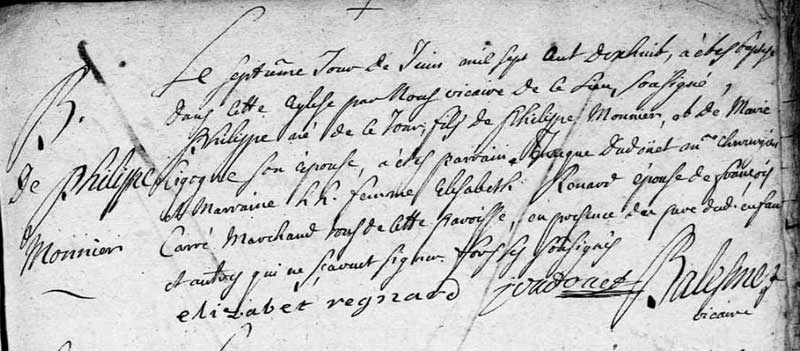 Le septieme Jour de Juin mil sept cent dixhuit, a étés baptisé
dans cette Eglise par Nous vicaire de ce Lieu, soussigné,
B. Philippe né de ce Jour, fils de Philippe Monnier, et de Marie
De Philippe Gigogne son épouse, a étés parrain Jacque Dadoüet me chirurgien
et Marraine h. femme Elisabeth Renard épouse de françois
Monnier Carré Marchand tous de cette paroisse, en presence du pere dudi enfan
et autres qui ne sçavent signer. fors les sousignés
elizabet regnard jdadouet Balesme
vicaire